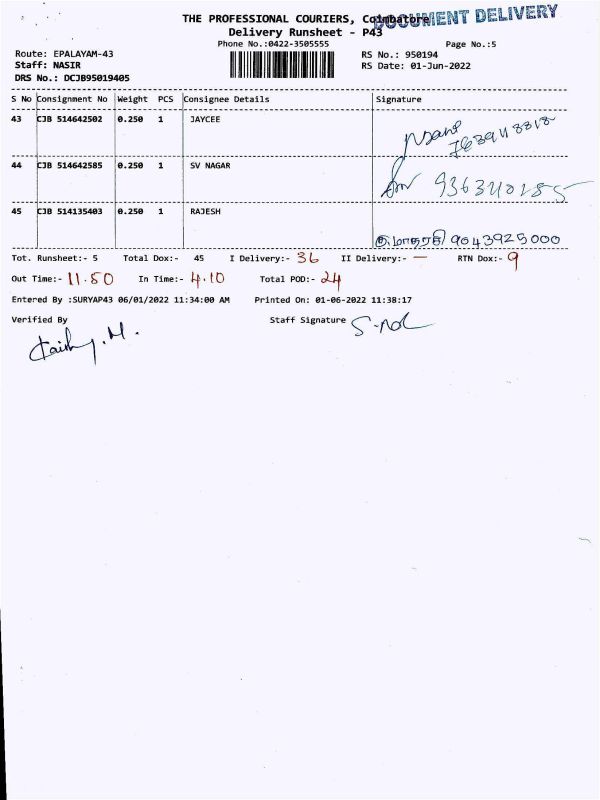 THE PROFESSIONAL COURIERS, Coimbatore
DOCUMENT DELIVERY
Delivery Runsheet - P43
Phone No.:0422-3505555
Page No.:5
Route: EPALAYAM-43
RS No.: 950194
Staff: NASIR
RS Date: 01-Jun-2022
DRS No.: DCJB95019405
S No Consignment No Weight PCS Consignee Details Signature
43 CJB 514642502 0.250 1 JAYCEE
44 CJB 514642585 0.250 1 SV NAGAR
45 CJB 514135403 0.250 1 RAJESH
9043925000
Tot. Runsheet:- 5 Total Dox:- 45 I Delivery:- 36 II Delivery:- — RTN Dox:- 9
Out Time:- 11.50 In Time:- 4.10 Total POD:- 24
Entered By :SURYAP43 06/01/2022 11:34:00 AM Printed On: 01-06-2022 11:38:17
Verified By Staff Signature